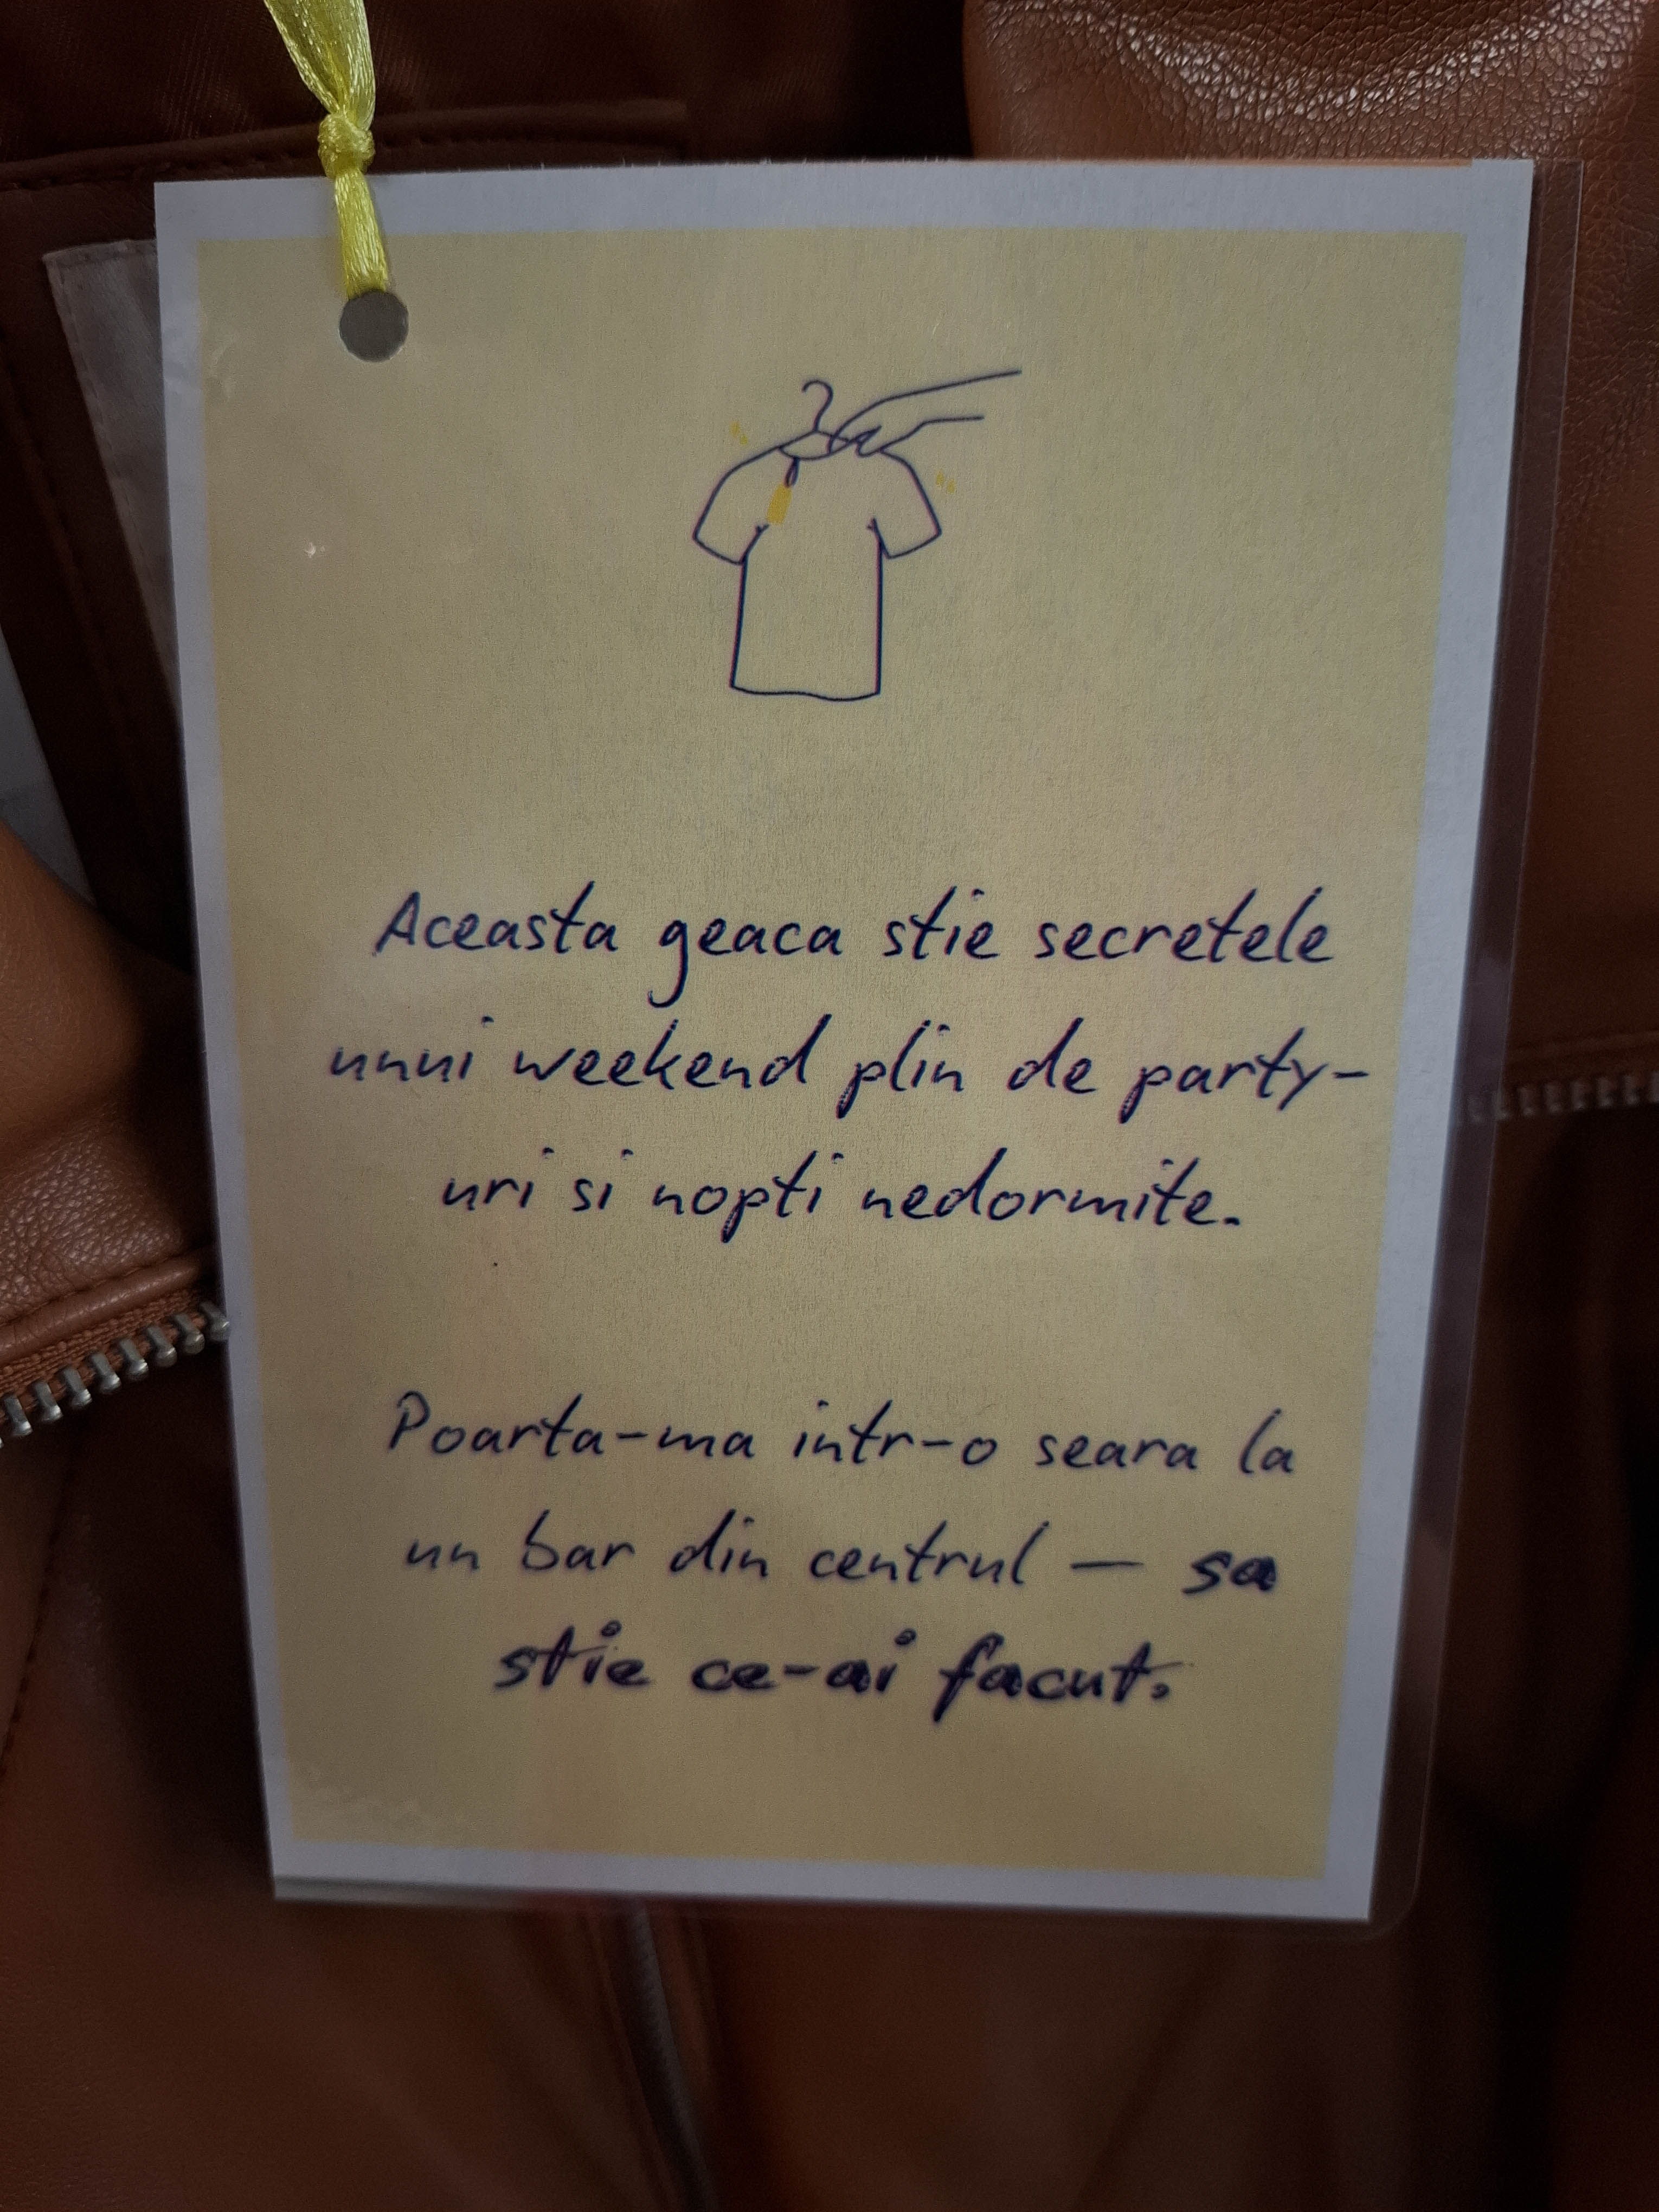 Aceasta geaca stie secretele
unui weekend plin de party-
uri si nopti nedormite.
Poarta-ma intr-o seara la
un bar din centrul — sa
stie ce-ai facut.